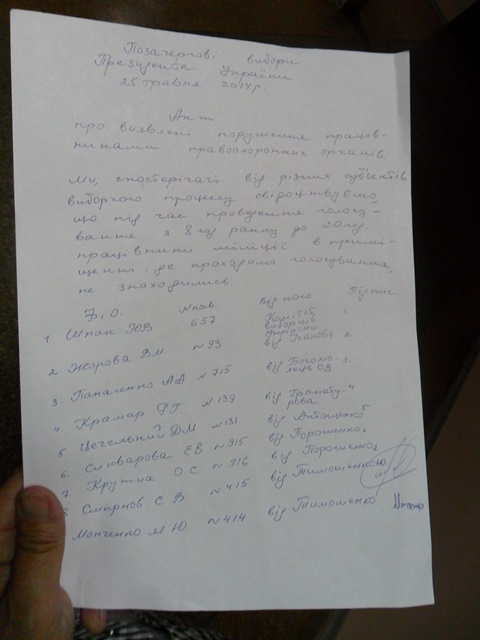 Позачергові вибори
Президента України
25 травня 2014р
Акт
про виявлені порушення праців-
никами правоохоронних органів.
Ми, спостерігачі від різних суб'єктів
виборчого процесу свідочтвуємо,
що під час проведення голосу-
вання з 8 год ранку до 20 год
працівники міліції в примі-
щенні, де проходило голосування,
не знаходились.
№пов. Від кого Підпис.
1 Шпак ЮВ 657 Комітет виборців України 1
2. Жорова ВМ №93 від 2
3. Паначенко АА №715 від Богомо-лець ОВ 3
4 Крамар ФГ №139 від 4
5 Цегельний ДМ №131 від
6. ЕВ №915 від Порошенко
7 Крутиа О С №916 від Порошенко
8 Смирнов С В №415 від Тимошенко
Монченко М Ю №414 від Тимошенко